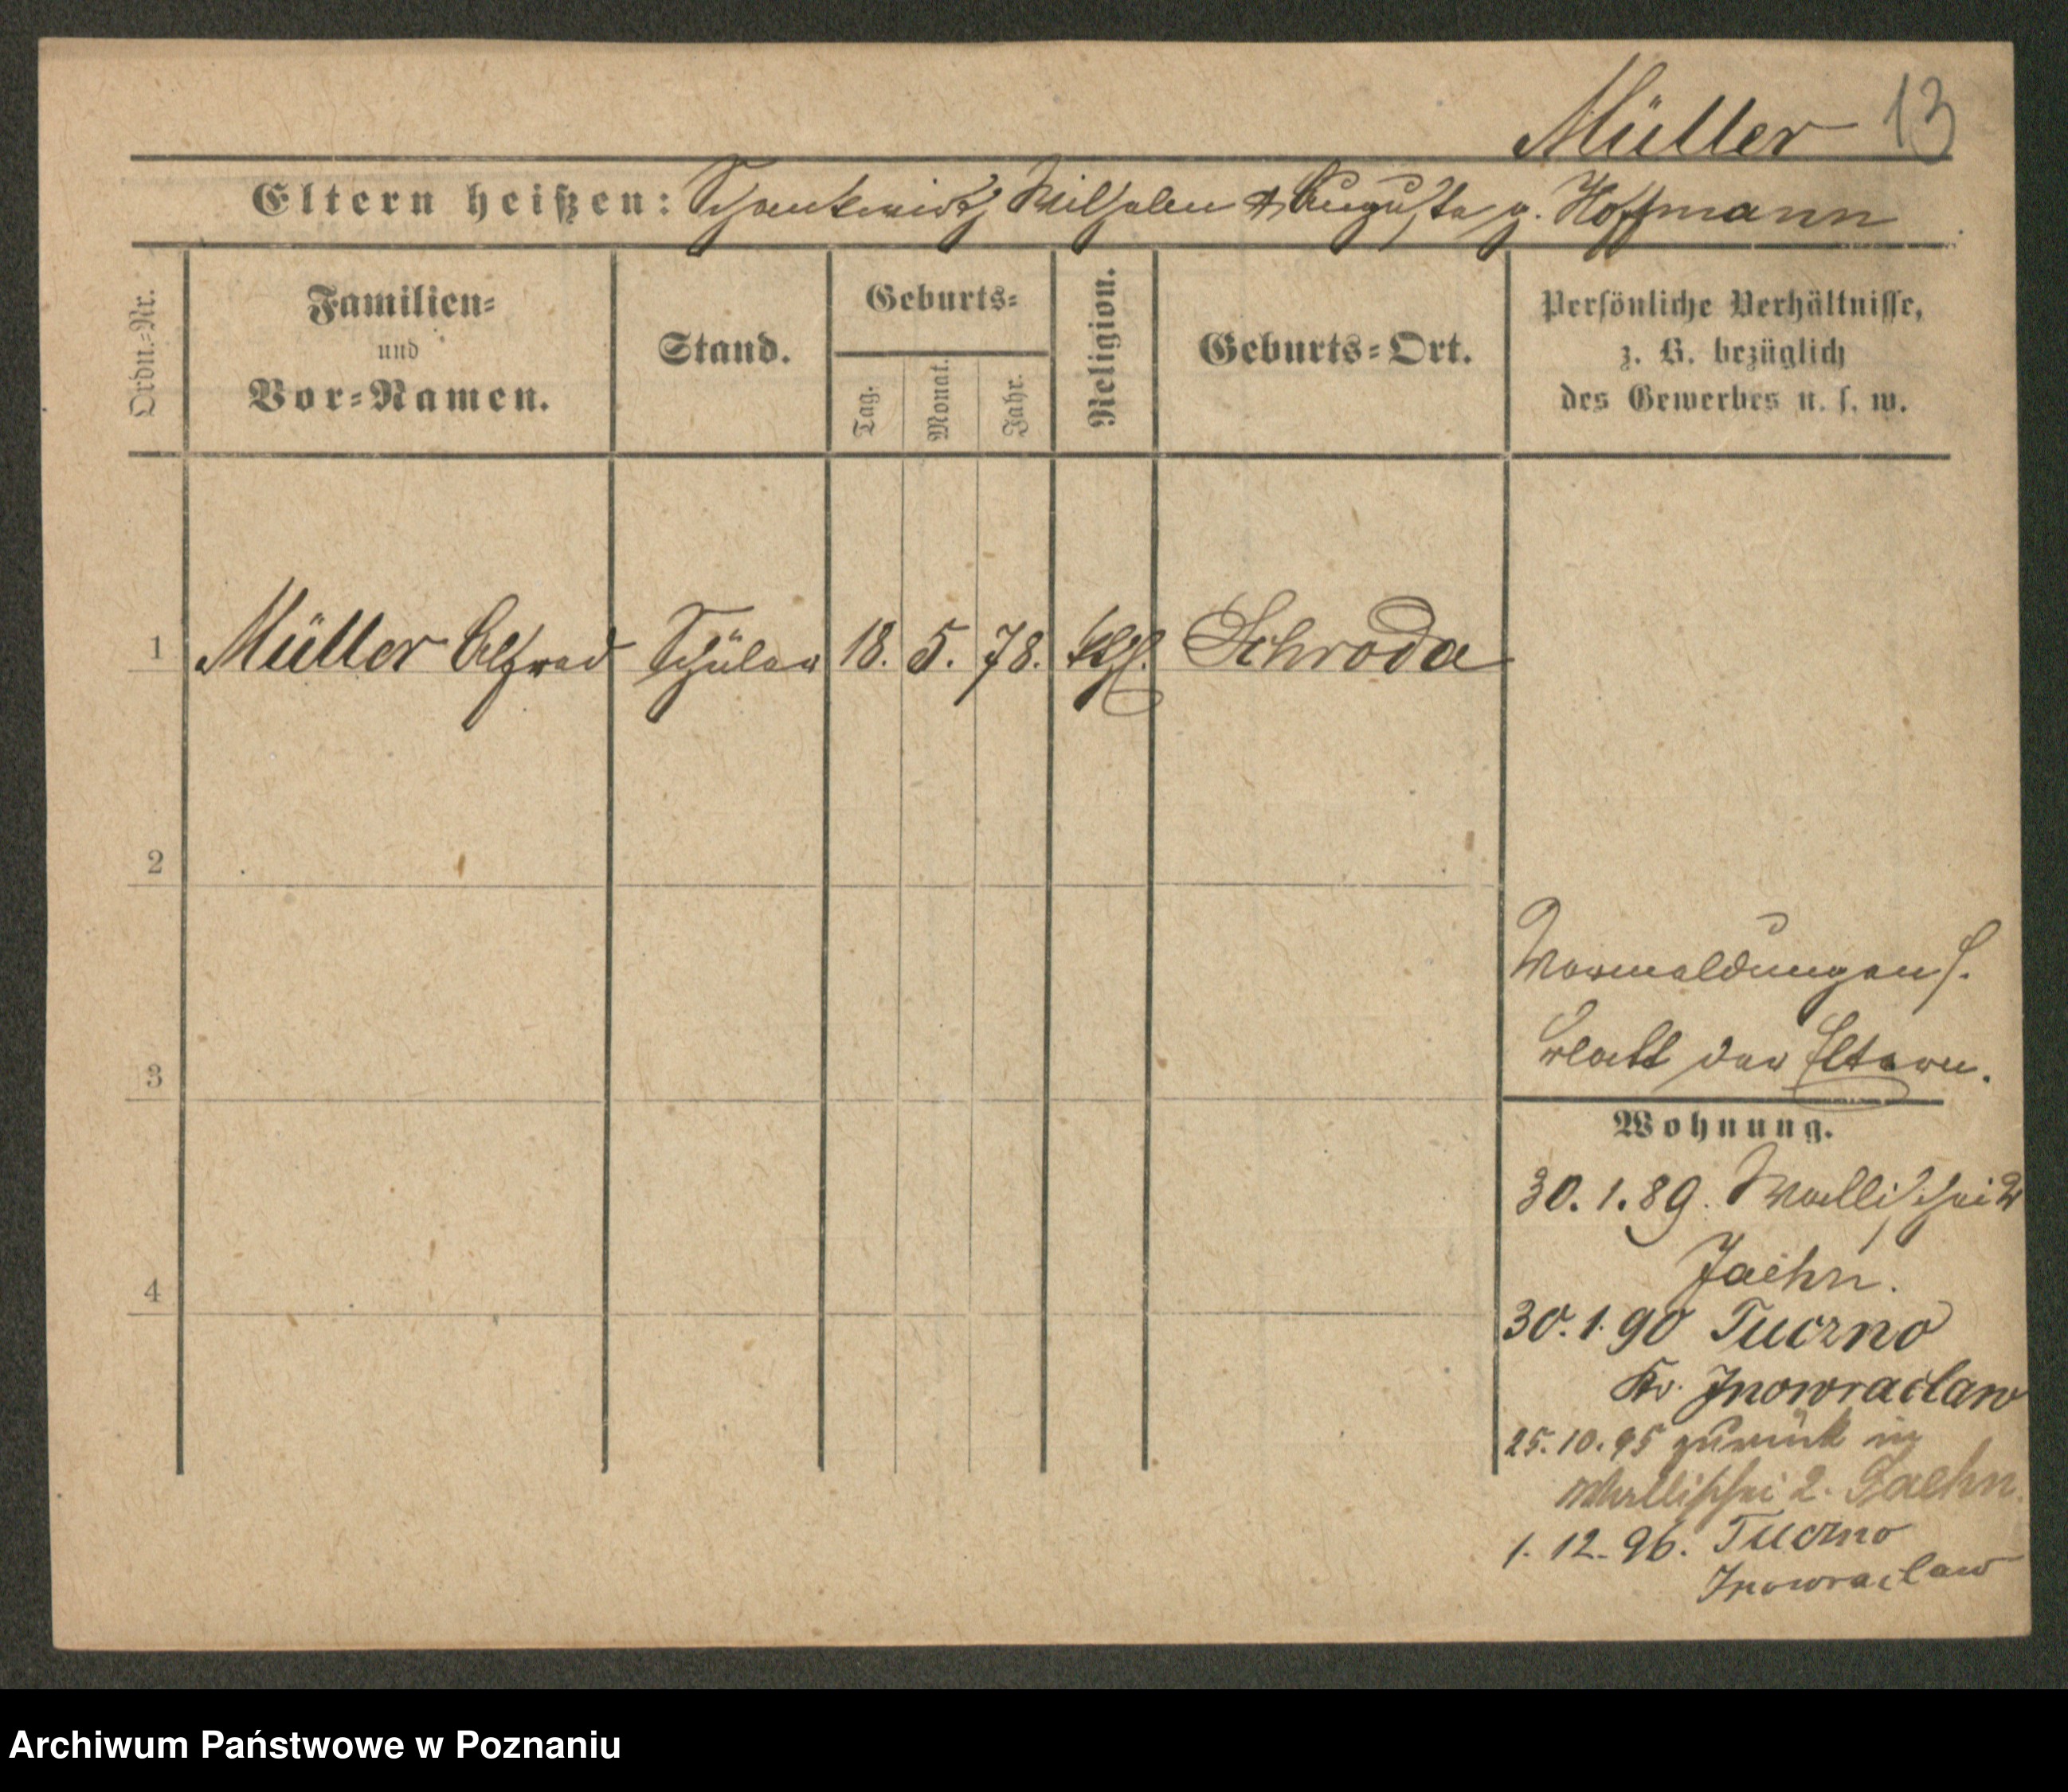 Müller 13
Eltern heißen: Schankwirth Wilhelm & Auguste g. Hoffmann
Ordn.-Nr.
Familien-
und
Vor-Namen.
Stand.
Geburts-
Tag.
Monat.
Jahr.
Religion.
Geburts-Ort.
Persönliche Verhältnisse,
z. B. bezüglich
des Gewerbes u. s. w.
1 Müller Alfred Schüler 18. 5. 78. Schroda
2
3
4
Vormeldungen s.
Blatt der Eltern.
Wohnung.
30. 1. 89. Wallischei 2
Jaehn.
30. 1. 90 Tuczno
Kr. Inowraclaw
25. 10. 95 zurück in
Wallischei 2. Jaehn.
1. 12. 96. Tuczno
Inowraclaw
Archiwum Państwowe w Poznaniu